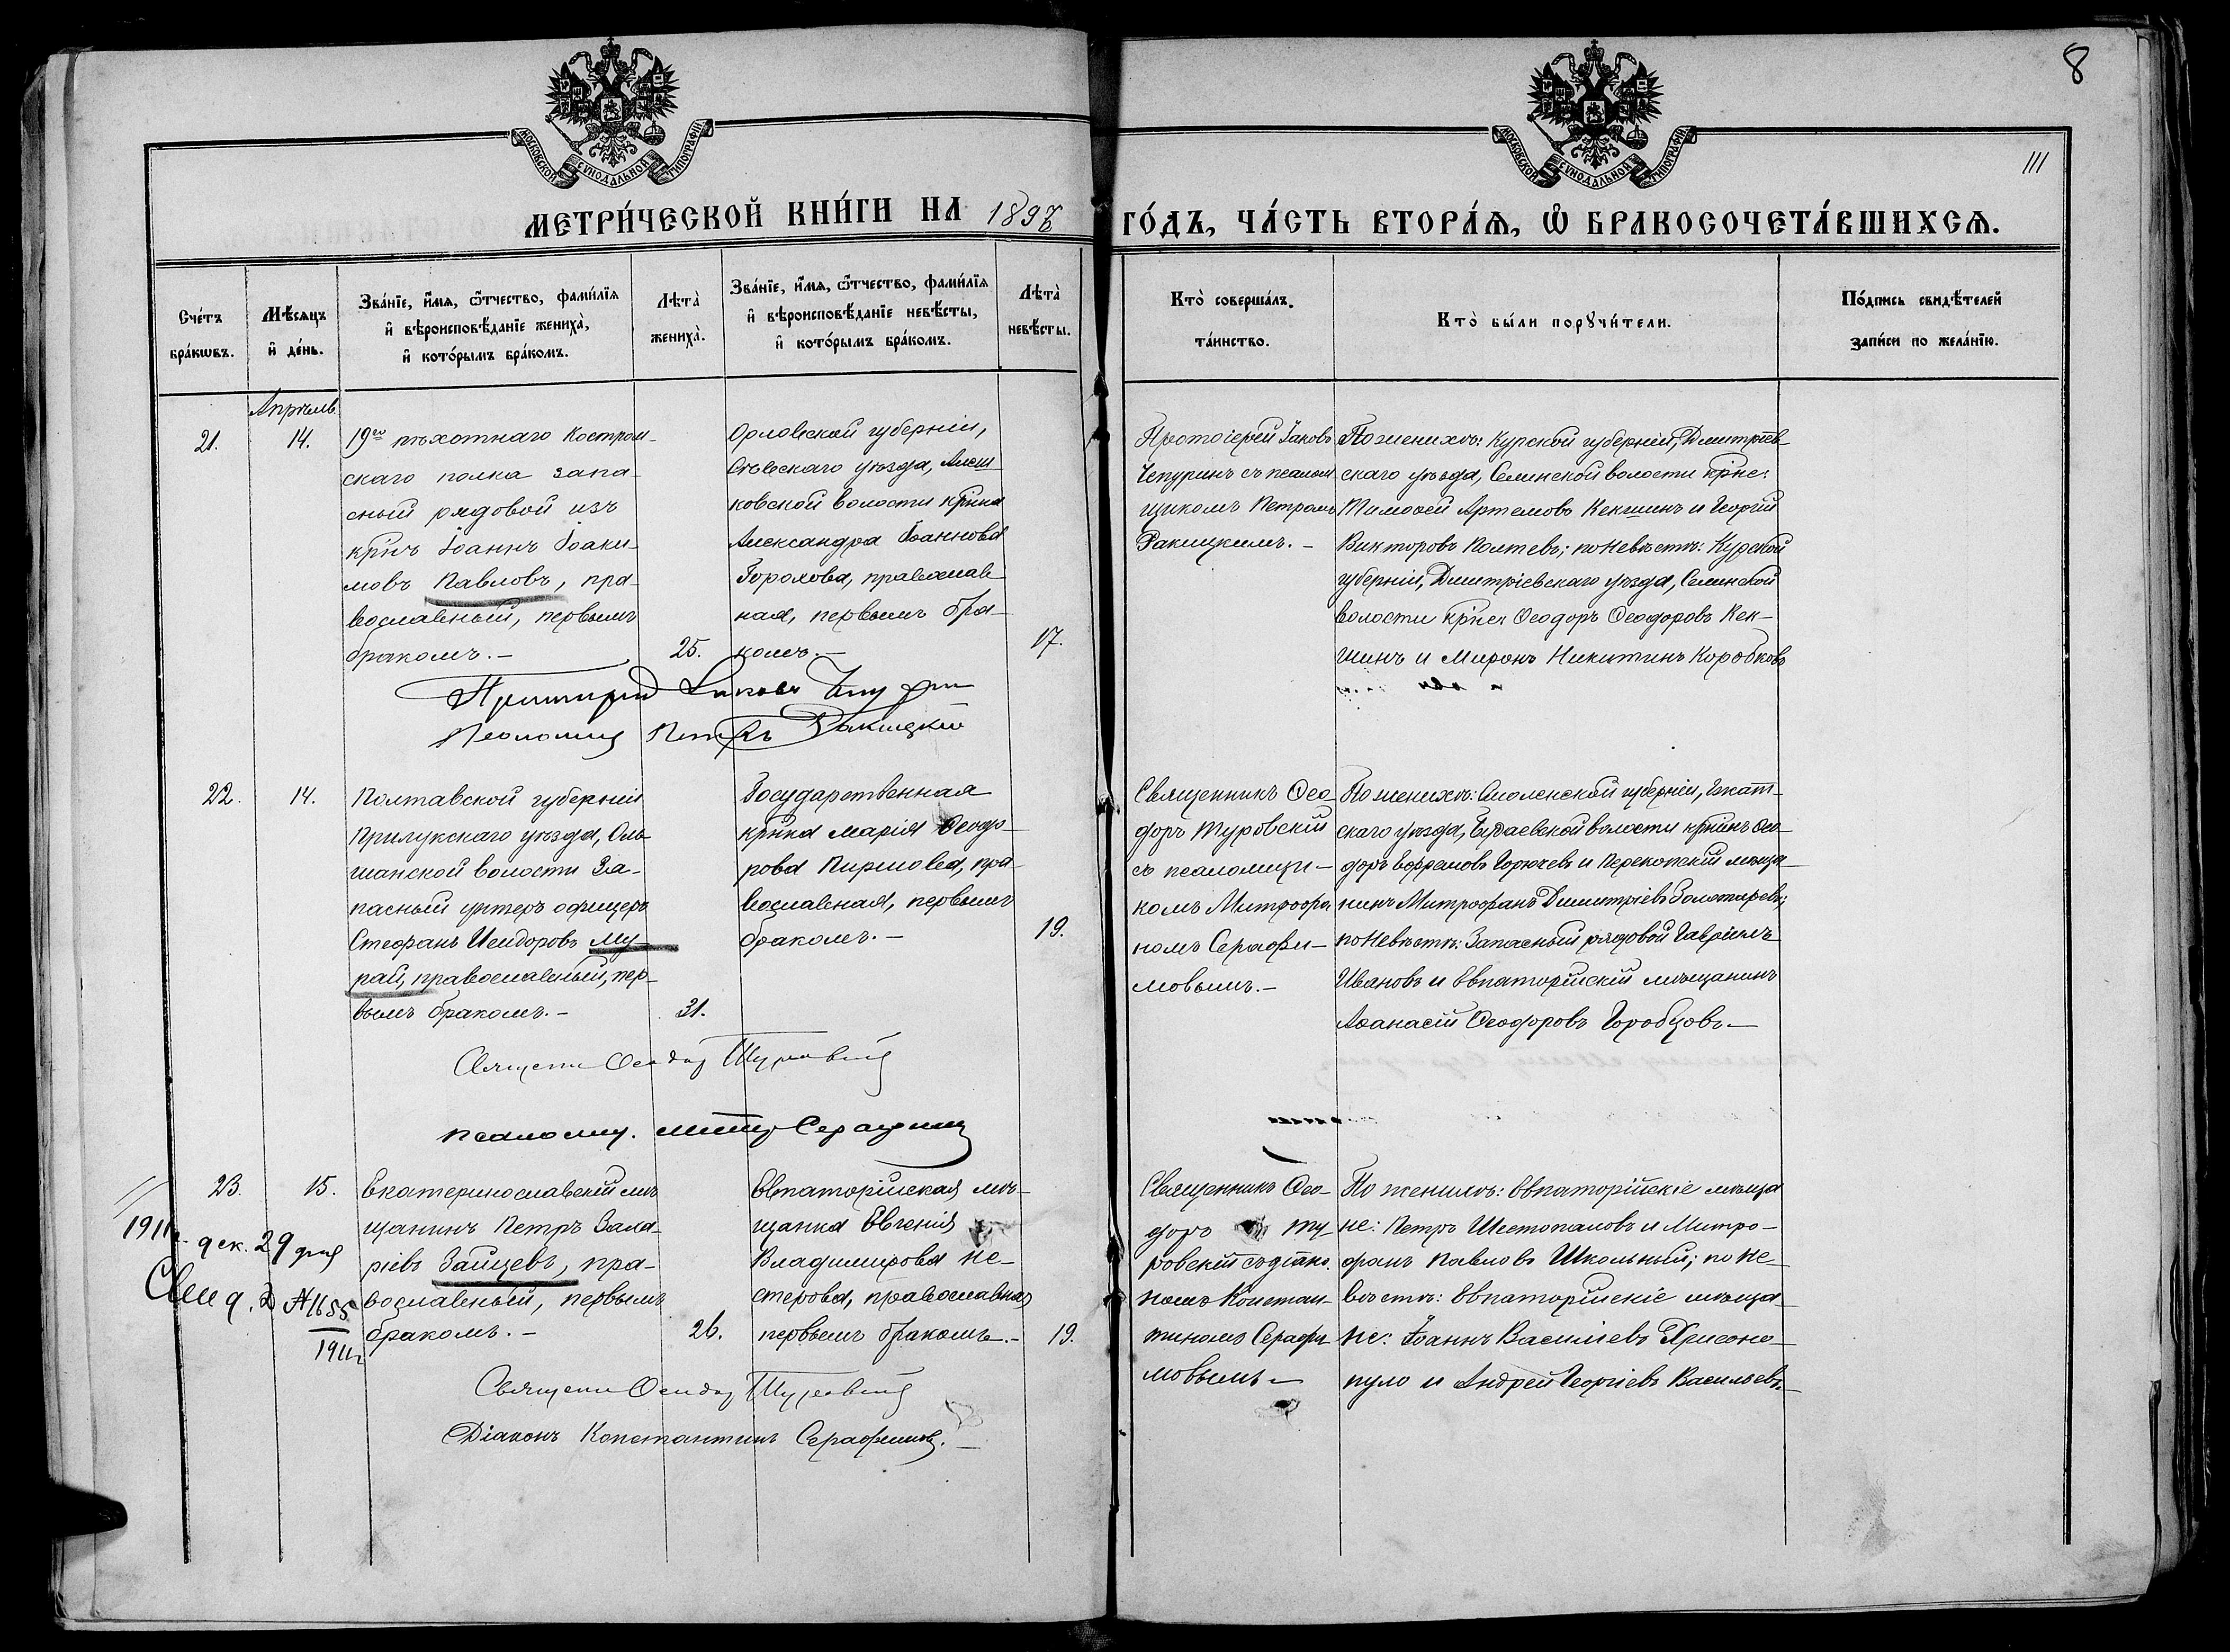 8
111
МОСКОВСКОЙ СѴНОДАЛЬНОЙ ТИПОГРАФІИ
МОСКОВСКОЙ СѴНОДАЛЬНОЙ ТИПОГРАФІИ
МЕТРИ́ЧЕСКОЙ КНИ́ГИ НА 1897
ГО́ДЪ, ЧА́СТЬ ВТОРА́Ѧ, Ѽ БРАКОСОЧЕТА́ВШИХСѦ.
Сче́тъ бра́кѡвъ.
Мѣ́сяцъ и҆ де́нь.
Зва́нїе, и҆́мѧ, ѻ҆́тчество, фами́лїѧ
и҆ вѣроисповѣ́данїе жениха̀,
и҆ кото́рымъ бра́комъ.
Лѣта̀ жениха̀.
Зва́нїе, и҆́мѧ, ѻ҆́тчество, фами́лїѧ
и҆ вѣроисповѣ́данїе невѣ́сты,
и҆ кото́рымъ бра́комъ.
Лѣта̀ невѣ́сты.
Кто̀ соверша́лъ
та́инство.
Кто̀ бы́ли порꙋчи́тели.
По́дпись свидѣ́телей
за́писи по жела́нїю.
Апрѣль
21.
14.
19го пѣхотнаго Костром-
скаго полка запа-
сный рядовой изъ
кр̃нъ Іоаннъ Іоаки-
мовъ Павловъ, пра-
вославный, первымъ
бракомъ.-
25.
Орловской губерніи,
Сѣвскаго уѣзда,
ковской волости кр̃нка
Александра Іоаннова
Горохова, православ-
ная, первымъ бра-
комъ.-
17.
Протоіерей Іаковъ
Чепуринъ съ псалом-
щикомъ Петромъ
Ракицкимъ.-
По женихѣ: Курской губерніи, Дмитріев-
скаго уѣзда, Селинской волости кр̃не:
Тимоѳей Артемовъ Кекшинъ и Георгій
Викторовъ Полтевъ; по невѣстѣ: Курской
губерніи, Дмитріевскаго уѣзда, Селинской
волости кр̃не Ѳеодоръ Ѳеодоровъ Кек-
шинъ и Миронъ Никитинъ Коробковъ
Протоіерей Іаковъ Чепурин
Псаломщ Петръ Ракицкій
22.
14.
Полтавской губерніи
Прилукскаго уѣзда, Оль-
шанской волости за-
пасный унтеръ офицеръ
Стефанъ Исидоровъ Му-
рай, православный, пер-
вымъ бракомъ.-
31.
Государственная
кр̃нка Марія Ѳеодо-
рова Пирогова, пра-
вославная, первымъ
бракомъ.-
19.
Священникъ Ѳео-
доръ Туровскій
съ псаломщи-
комъ Митрофа-
номъ Серафи-
мовымъ.-
По женихѣ: Смоленской губерніи, Гжат-
скаго уѣзда, волости кр̃нинъ Ѳео-
доръ Ефремовъ Горючевъ и Перекопскій мѣща-
нинъ Митрофанъ Димитріевъ Золотаревъ;
по невѣстѣ: Запасный рядовой Гавріилъ
Ивановъ и Евпаторійскій мѣщанинъ
Аѳанасій Ѳеодоровъ Горобцовъ.-
Священн Ѳеодор Туровскій
псаломщ. Митр Серафимов
23.
15.
Екатеринославскій мѣ-
щанинъ Петръ Заха-
ріевъ Зайцевъ, пра-
вославный, первымъ
бракомъ.-
26.
Евпаторійская мѣ-
щанка Евгенія
Владимирова Не-
стерова, православная
первымъ бракомъ.-
19.
Священникъ Ѳео-
доръ Ту-
ровскій съ діако-
номъ Констан-
тиномъ Серафи-
мовымъ-
По женихѣ: Евпаторійскіе мѣща
не: Петръ Шестопаловъ и Митро-
фанъ Павловъ Школьный; по не-
вѣстѣ: Евпаторійскіе мѣща-
не: Іоаннъ Василіевъ Хрисоно-
пуло и Андрей Георгіевъ Васильевъ.
1911 г.
дек. 29 дня
Свид. д №1655
1911г
Священн Ѳеодор Туровскій
Діаконъ Константинъ Серафимовъ.-